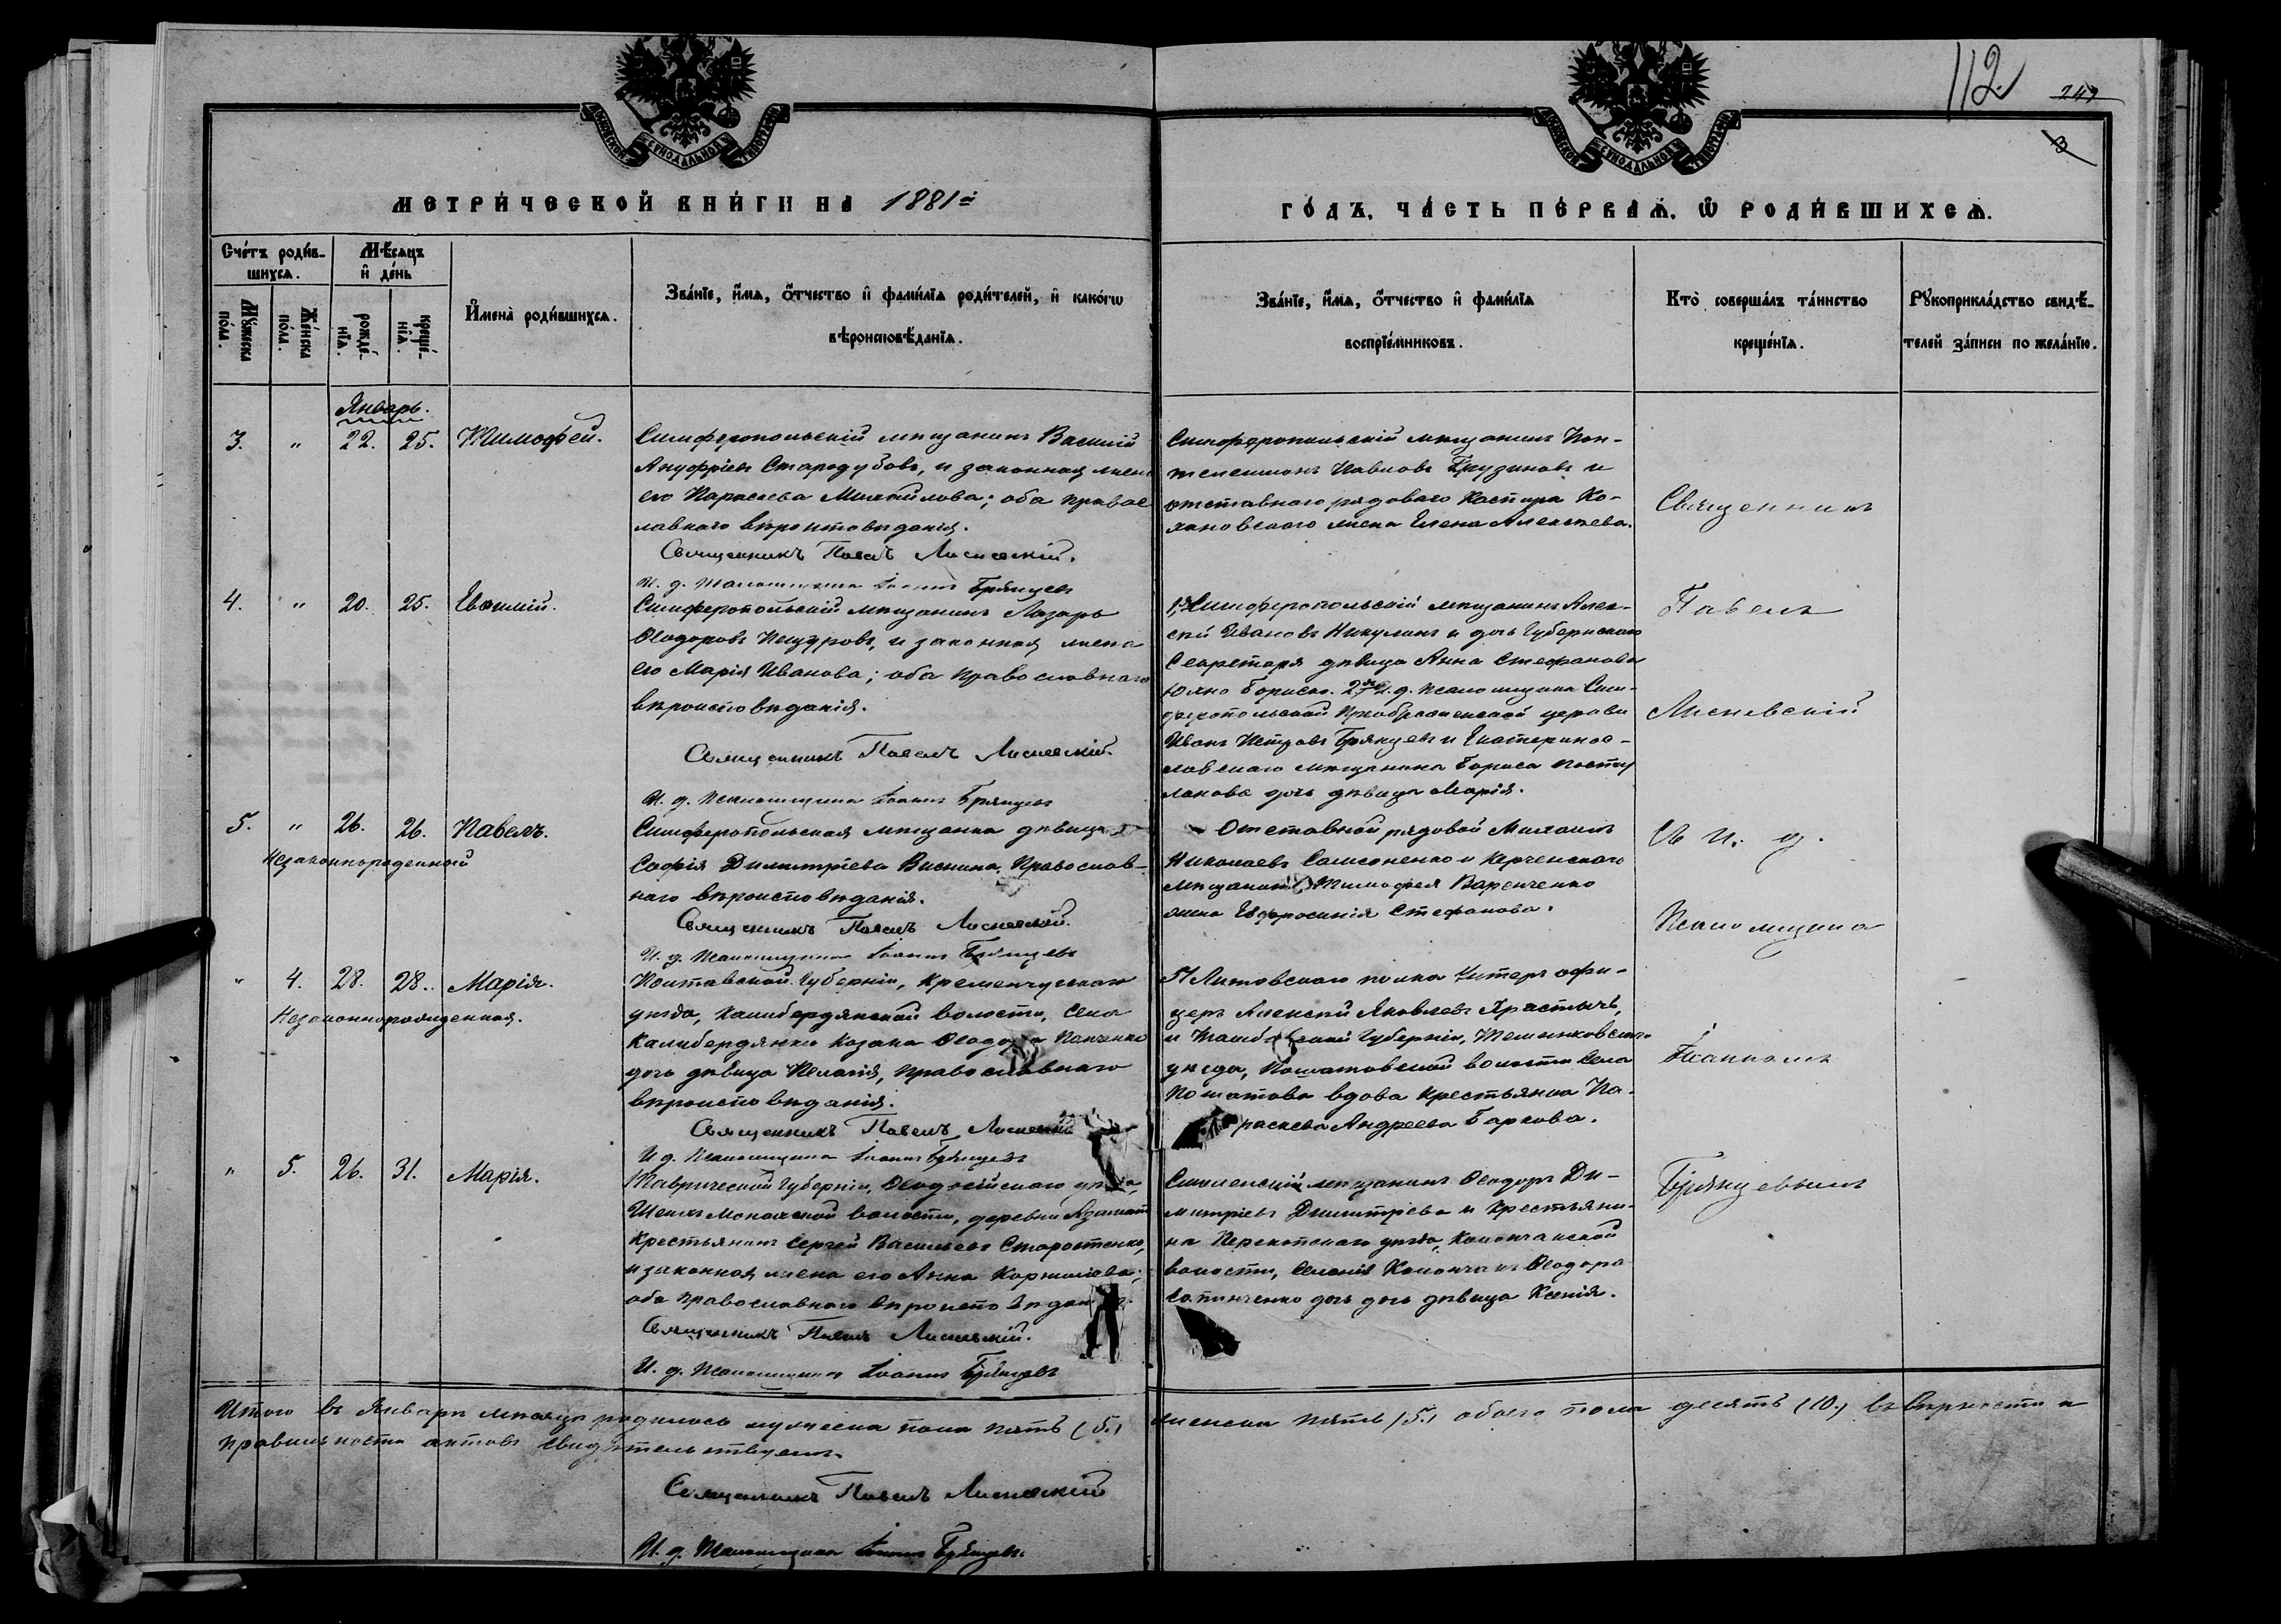 112
249
3
МОСКОВСКОЙ СѴНОДАЛЬНОЙ ТИПОГРАФІИ
МОСКОВСКОЙ СѴНОДАЛЬНОЙ ТИПОГРАФІИ
МЕТРИ́ЧЕСКОЙ КНИ́ГИ НА 1881й
ГО́ДЪ, ЧА́СТЬ ПЕ́РВАѦ, Ѡ҆ РОДИ́ВШИХСѦ.
Сче́тъ роди́в-
шихсѧ.
Мꙋ́жеска по́ла.
Же́нска по́ла.
Мѣ́сѧцъ
и҆ де́нь
рожде́-
нїѧ.
креще́-
нїѧ.
И҆мена̀ роди́вшихсѧ.
Зва́нїе, и҆́мѧ, ѻ҆́тчество и҆ фами́лїѧ роди́телей, и҆ како́гѡ
вѣроисповѣ́данїѧ.
Зва́нїе, и҆́мѧ, ѻ҆́тчество и҆ фами́лїѧ
воспрїе́мниковъ.
Кто̀ соверша́лъ та́инство
креще́нїѧ.
Рꙋкоприкла́дство свидѣ́-
телей за́писи по жела́нїю.
Январь.
3. " 22. 25. Тимофей.
Симферопольскій мѣщанинъ Василій
Ануфріевъ Стародубовъ, и законная жена
его Параскева Михайлова; оба правос
лавнаго вѣроисповѣданія.
Священникъ Павелъ Лисневскій.
И. д. Псаломщика Іоаннъ Брянцевъ
Симферопольскій мѣщанинъ Пан-
телеимонъ Павловъ Грузиновъ и
отставнаго рядоваго Каспира Ко-
хановскаго жена Елена Алексѣева.
4. " 20. 25. Евѳимій.
Симферопольскій мѣщанинъ Лазарь
Ѳеодоровъ, и законная жена
его Марія Иванова; оба православнаго
вѣроисповѣданія.
Священникъ Павелъ Лисневскій.
И. д. Псаломщика Іоаннъ Брянцевъ
1, Симферопольскій мѣщанинъ Алек-
сѣй Ивановъ Никулинъ и дочь Губернскаго
Секретаря дѣвица Анна Стефанова
2, И. д. псаломщика Сим-
феропольской Преображенской церкви
Иванъ Петровъ Брянцевъ и Екатеринос-
лавскаго мѣщанина Бориса
дочь дѣвица Марія.
5. " 26. 26. Павелъ.
Незаконнорожденный
Симферопольская мѣщанка дѣвица
Софія Димитріева Вискина, Православ-
наго вѣроисповѣданія.
Священникъ Павелъ Лисневскій.
И. д. Псаломщика Іоаннъ Брянцевъ
Отставной рядовой Михаилъ
Николаевъ Самсоненко и Керченскаго
мѣщанина Тимофея Варенченко
жена Евфросинія Стефанова.
" 4. 28. 28. Марія.
Незаконнорожденная.
Полтавской Губерніи, Кременчугскаго
уѣзда, Калибердянской волости, Села
Калибердянки Козака Ѳеодора Панченко
дочь дѣвица Пелагія, православнаго
вѣроисповѣданія.
Священникъ Павелъ Лисневскій
И. д. Псаломщика Іоаннъ Брянцевъ
51 Литовскаго полка Унтеръ офи-
церъ Алексѣй Яковлевъ Храстычъ,
и Тамбовской Губерніи, Темниковскаго
уѣзда, волости Села
вдова крестьянка Па-
раскева Андреева Баркова.
" 5. 26. 31. Марія.
Таврической Губерніи, Ѳеодосійскаго уѣзда,
Шеихъ Монахской волости, деревни Азамат
Крестьянинъ Сергѣй Васильевъ Старостенко,
и законная жена его Анна Корнилова;
оба православнаго вѣроисповѣданія.
Священникъ Павелъ Лисневскій.
И. д. Псаломщика Іоаннъ Брянцевъ
Смоленскій мѣщанинъ Ѳеодоръ Ди-
митріевъ Димитріевъ и Крестьяни-
на Перекопскаго уѣзда, Каланчакской
волости, Селенія Каланчакъ Ѳеодора
дочь дочь дѣвица Ксенія.
Священникъ
Павелъ
Лисневскій
съ И. д.
Псаломщика
Іоанномъ
Брянцевымъ
Итого въ Январѣ мѣсяцѣ родилось мужеска пола пять (5.) женска пять (5.) обоего пола десять (10.) въ вѣрности и
правильности актовъ свидѣтельствуемъ.
Священникъ Павелъ Лисневскій
И. д. Псаломщика Іоаннъ Брянцевъ.